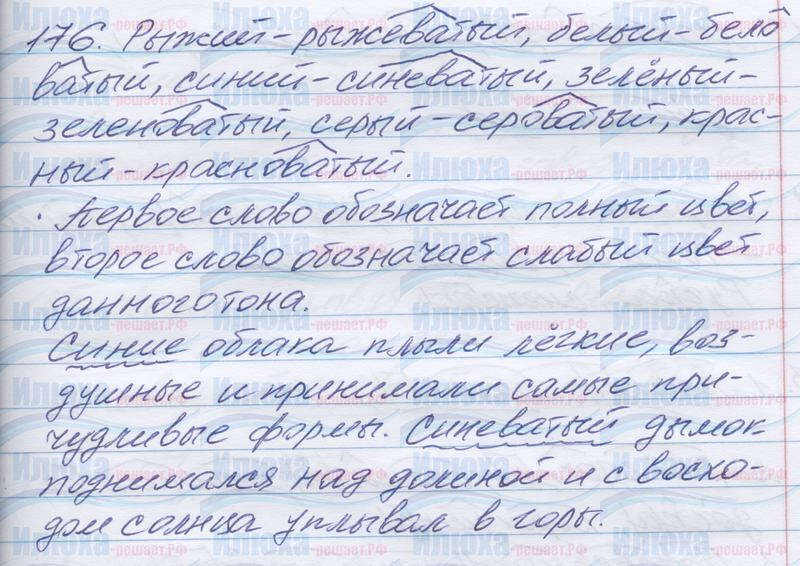 176. Рыжий - рыжеватый, белый - бело
ватый, синий - синеватый, зелёный -
зеленоватый, серый - сероватый, крас-
ный - красноватый.
Первое слово обозначает полный цвет,
второе слово обозначает слабый цвет
данного тона.
Синие облака плыли лёгкие, воз-
душные и принимали самые при-
чудливые формы. Синеватый дымок
поднимался над долиной и с восхо-
дом солнца уплывал в горы.
Илюха-решает.РФ